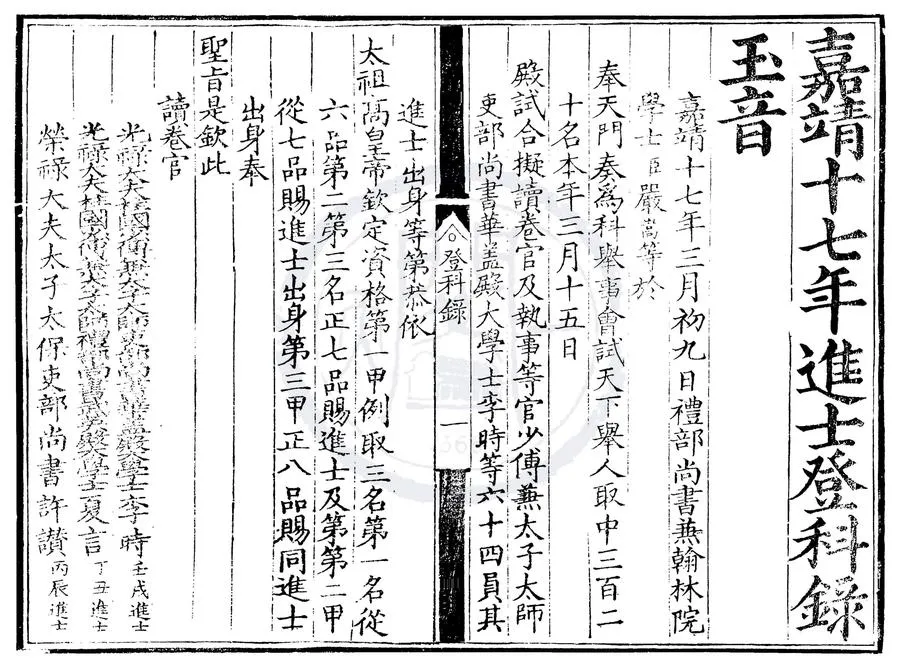 嘉靖十七年進士登科錄
玉音
嘉靖十七年三月初九日禮部尚書兼翰林院
學士臣嚴嵩等於
奉天門奏爲科舉事會試天下舉人取中三百二
十名本年三月十五日
殿試合擬讀卷官及執事等官少傅兼太子太師
吏部尚書華盖殿大學士李時等六十四員其
進士出身等第恭依
太祖高皇帝欽定資格第一甲例取三名第一名從
六品第二第三名正七品賜進士及第第二甲
從七品賜進士出身第三甲正八品賜同進士
出身奉
聖旨是欽此
讀卷官
光祿大夫柱國少傅兼太子太師吏部尚書華盖殿大學士李時 壬戌進士
光祿大夫柱國少傅兼太子太師禮部尚書武英殿大學士夏言 丁丑進士
榮祿大夫太子太保吏部尚書許讚 丙辰進士
登科錄
一